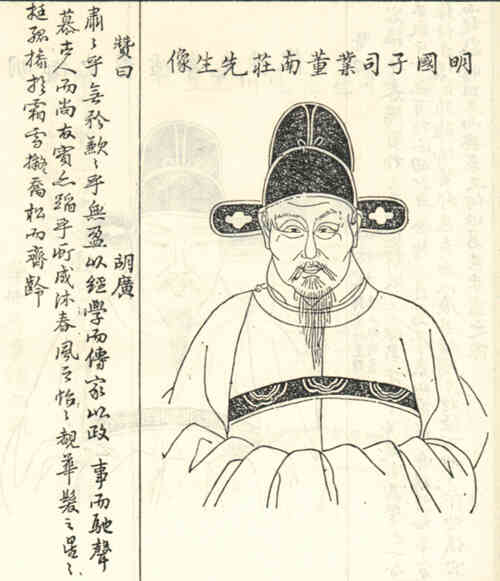 明國子司業董南莊先生像
贊曰 胡廣
肅〻乎無矜歉〻乎無盈以經學而傳家以政事而馳聲
慕古人而尚友實蹈乎所咸沐春風之怡〻覩華髮之星〻
挺孤操於霜雪擬喬松而齊齡